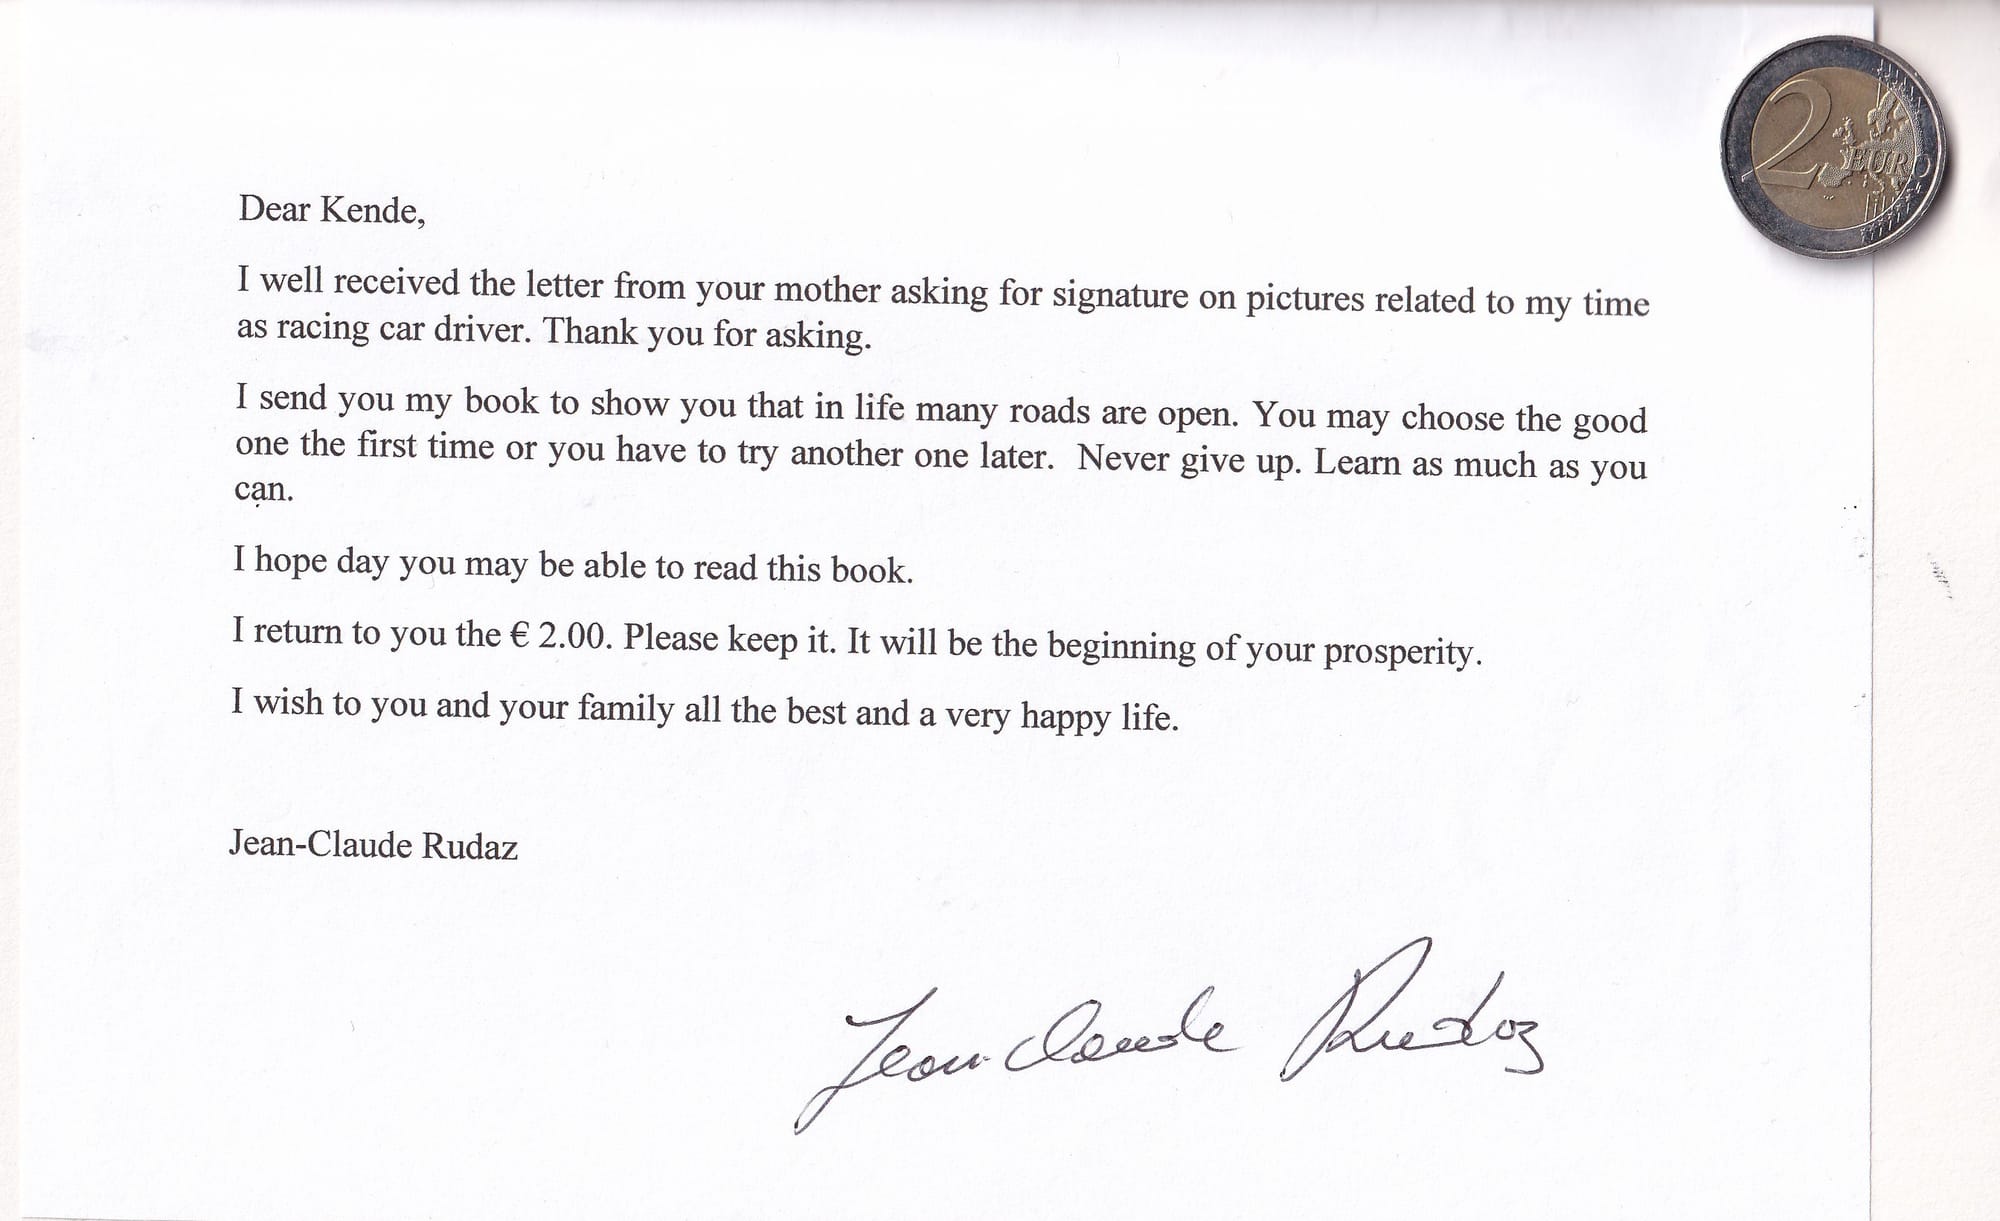 2 EURO
Dear Kende,
I well received the letter from your mother asking for signature on pictures related to my time
as racing car driver. Thank you for asking.
I send you my book to show you that in life many roads are open. You may choose the good
one the first time or you have to try another one later.  Never give up. Learn as much as you
can.
I hope day you may be able to read this book.
I return to you the € 2.00. Please keep it. It will be the beginning of your prosperity.
I wish to you and your family all the best and a very happy life.
Jean-Claude Rudaz
Jean-Claude Rudaz